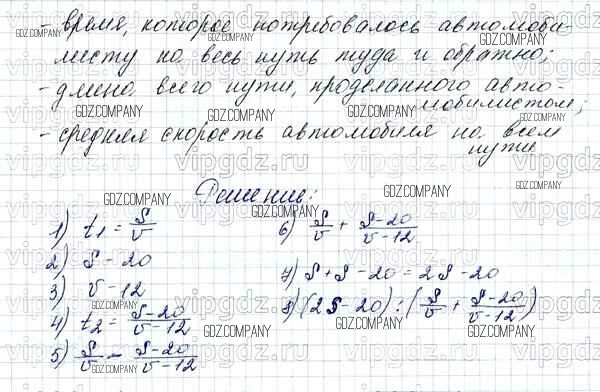 - время, которое потребовалось автомоби-
листу на весь путь туда и обратно;
- длина всего пути, проделанного авто-
мобилистом;
- средняя скорость автомобиля на всем
пути
Решение:
1) t₁ = S/v
2) S - 20
3) v - 12
4) t₂ = (S-20)/(v-12)
5) S/v - (S-20)/(v-12)
6) S/v + (S-20)/(v-12)
7) S + S - 20 = 2S - 20
8) (2S - 20) : (S/v + (S-20)/(v-12))
GDZ.COMPANY
vipgdz.ru